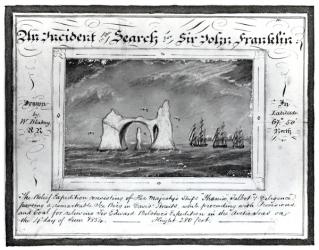 An Incident of Search for Sir John Franklin.
Drawn
by
W. 
R.N.
In
Latitude
67° 50'
North
The Relief Expedition consisting of Her Majesty's Ships Phœnix, Talbot & Diligence,
passing a remarkable Ice Berg in Davis' Straits while proceeding with Provisions
and Coal for relieving Sir Edward Belcher's Expedition in the Arctic Seas on
the 14 day of June 1854. Height 280 feet.